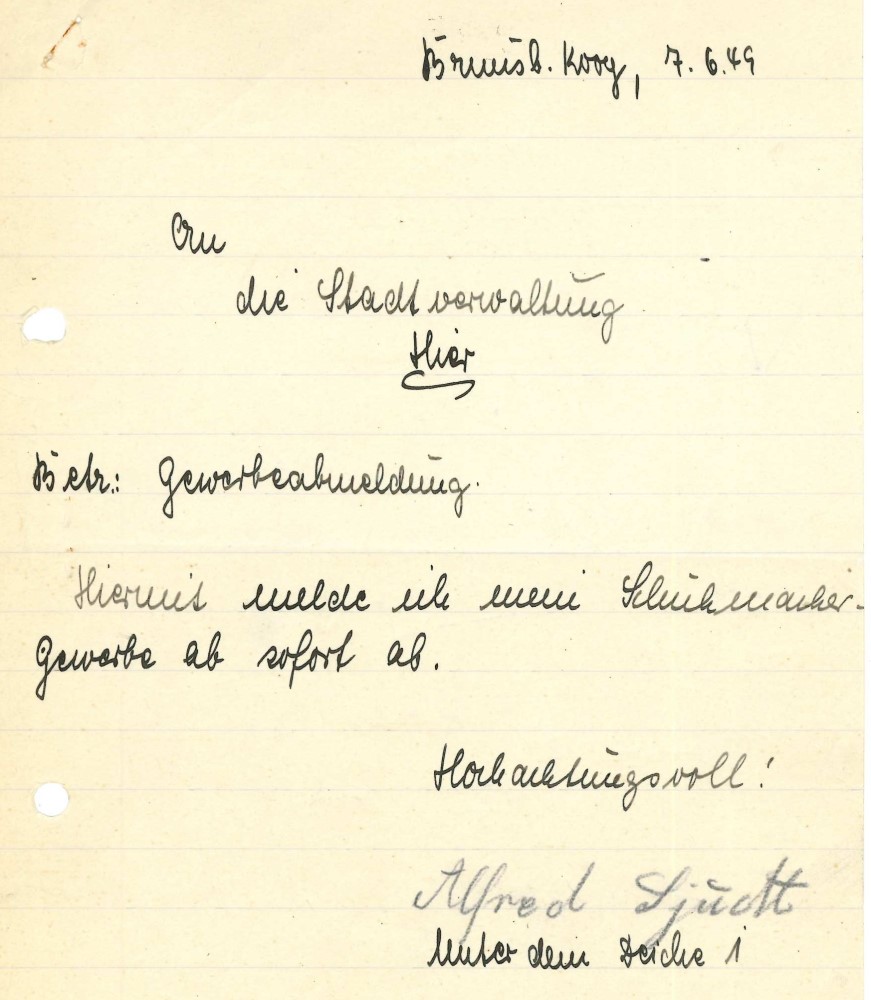 Brunsb. Koog, 7.6.49
An
die Stadtverwaltung
Hier
Betr.: Gewerbeabmeldung.
Hiermit melde ich mein Schuhmacher-
Gewerbe ab sofort ab.
Hochachtungsvoll!
Alfred
Unter dem Deiche 1